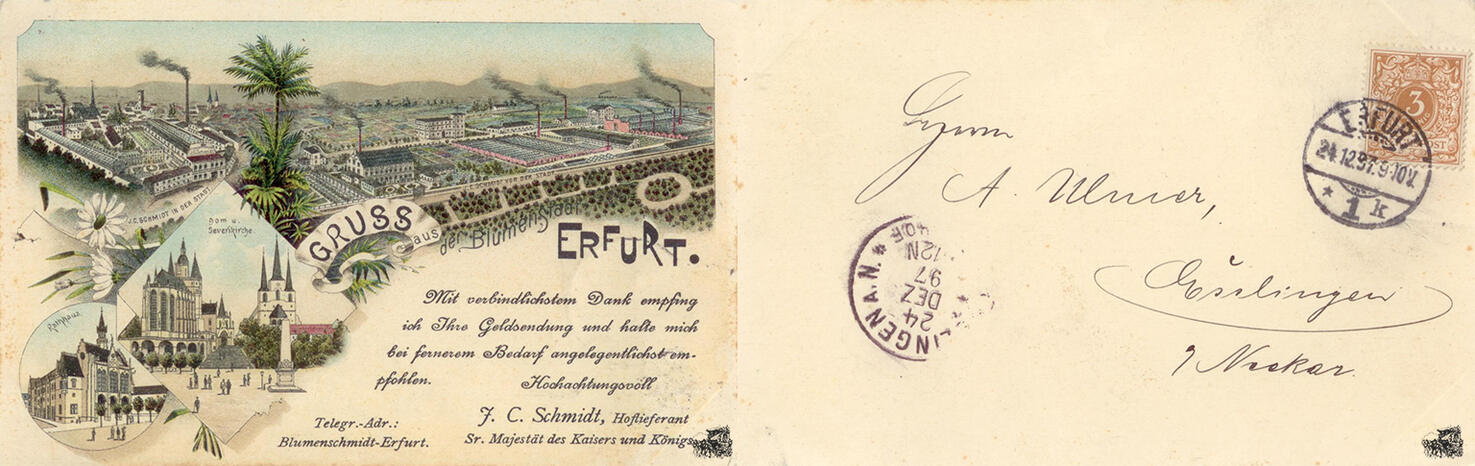 J. C. SCHMIDT IN DER STADT
Dom u.
Severikirche.
Rathhaus.
GRUSS
aus
der Blumenstadt
ERFURT.
Mit verbindlichstem Dank empfing
ich Ihre Geldsendung und halte mich
bei fernerem Bedarf angelegentlichst em-
pfohlen. Hochachtungsvoll
J. C. Schmidt, Hoflieferant
Sr. Majestät des Kaisers und Königs.
Telegr.-Adr.:
Blumenschmidt-Erfurt.
3
ERFURT
24.12.97.9-10V.
* 1 k
Herrn
A. Ulmer,
Esslingen
a/ Neckar.
LINGEN A.N. *
24
DEZ
97
12N